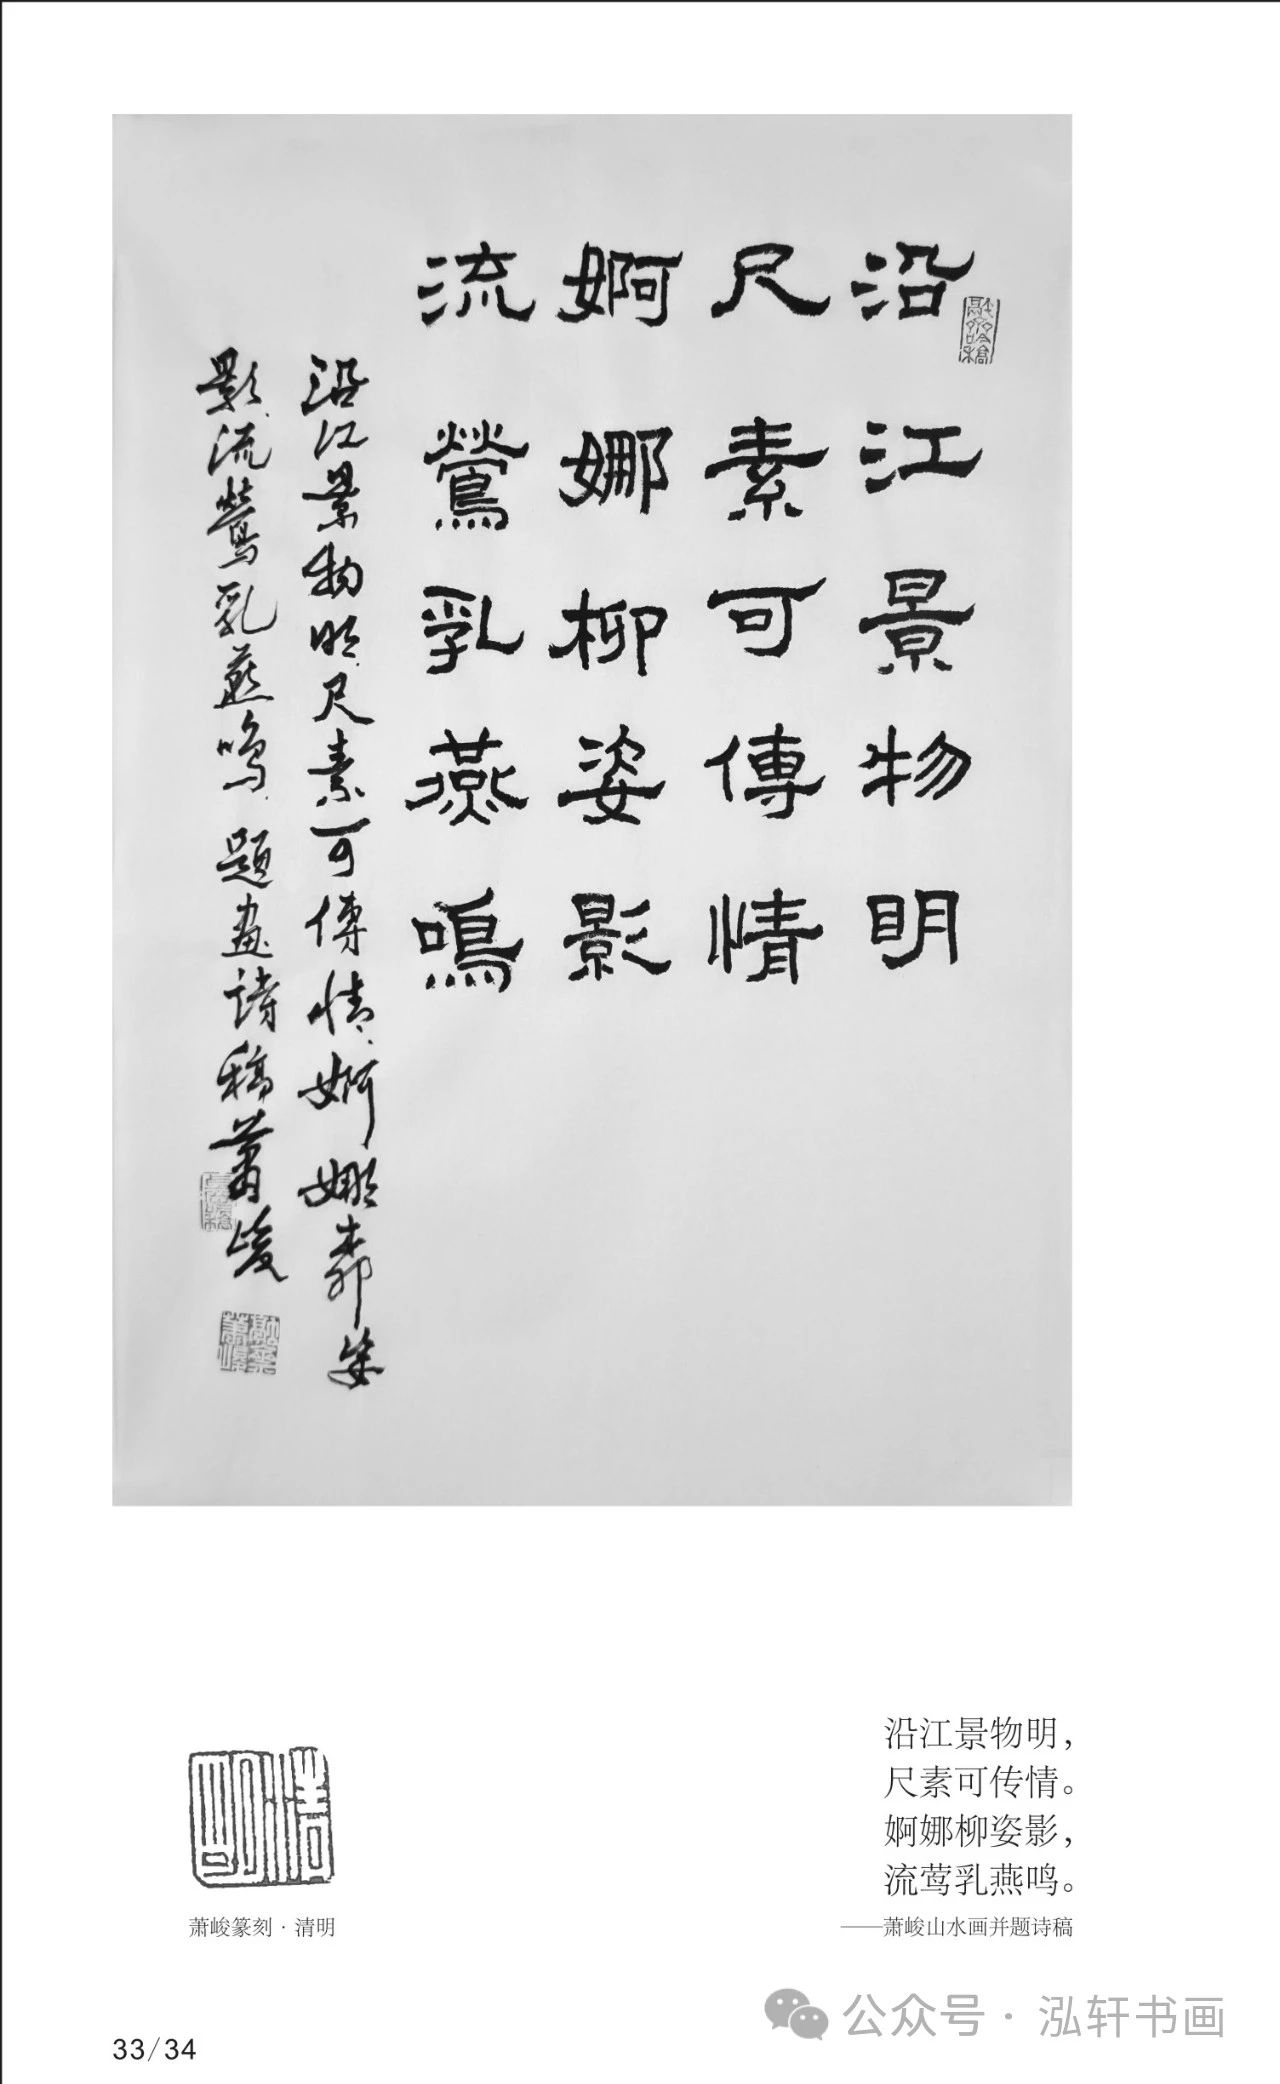 沿江景物明
尺素可傳情
婀娜柳姿影
流鶯乳燕鳴
沿江景物明尺素可傳情婀娜柳姿
影流鶯乳燕鳴題画诗稿萧峻
沿江景物明，
尺素可传情。
婀娜柳姿影，
流莺乳燕鸣。
——萧峻山水画并题诗稿
清明
萧峻篆刻·清明
33/34
公众号·泓轩书画